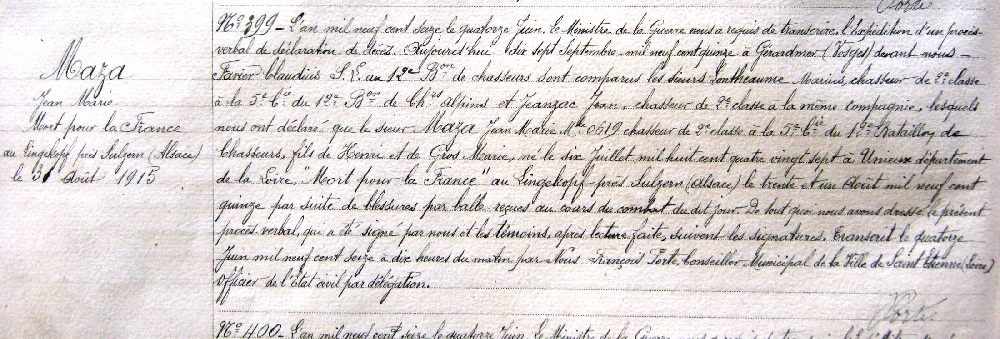 Porte
Maza
Jean Marie
Mort pour la France
au Lingekopf près Sulzern (Alsace)
le 31 Août 1915
N° 399 _ L'an mil neuf cent seize le quatorze Juin, le Ministre de la Guerre nous a requis de transcrire l'expédition d'un procès-
verbal de déclaration de décès. Aujourd'hui dix sept Septembre mil neuf cent quinze à Gérardmer (Vosges) devant nous _
Favier Claudius S. L. au 12e Bon de chasseurs sont comparus les sieurs Marius, chasseur de 2e classe
à la 5e Cie du 12e Bon de Chrs alpins et Jeanzac Jean, chasseur de 2e classe à la même compagnie, lesquels
nous ont déclaré que le sieur Maza Jean Marie Mle 0619 chasseur de 2e classe à la 5e Cie du 12e Bataillon de
Chasseurs, fils de Henri et de Gros Marie, né le six Juillet mil huit cent quatre vingt sept à Unieux département
de la Loire, "Mort pour la France" au Lingekopf près Sulzern (Alsace) le trente et un Août mil neuf cent
quinze par suite de blessures par balle reçues au cours du combat du dit jour. De tout quoi nous avons dressé le présent
procès verbal, qui a été signé par nous et les témoins, après lecture faite, suivent les signatures. Transcrit le quatorze
Juin mil neuf cent seize à dix heures du matin par Nous François Porte, Conseiller Municipal de la Ville de Saint Etienne (Loire)
Officier de l'Etat civil par délégation.
Porte
N° 400 _ L'an mil neuf cent seize le quatorze Juin, le Ministre de la Guerre nous a requis de